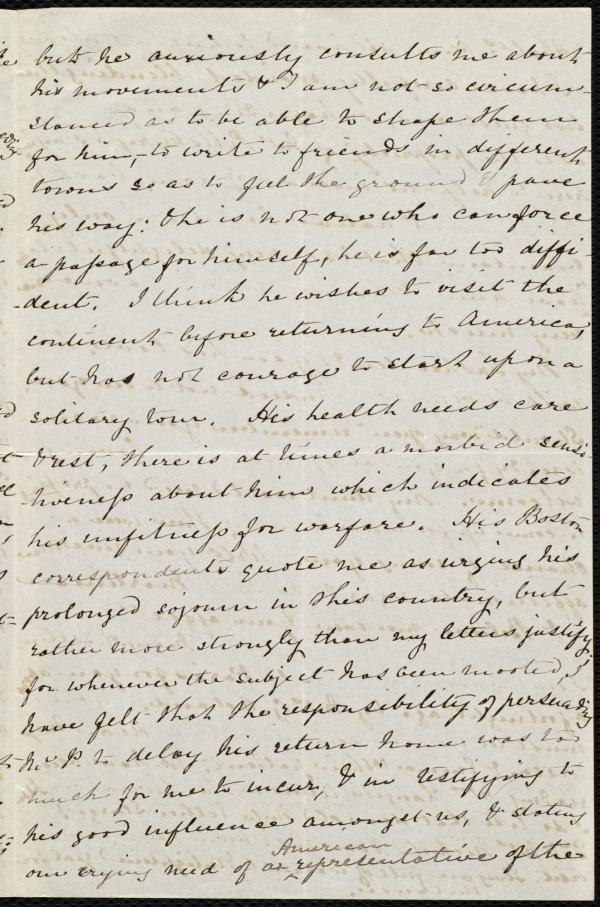 but he anxiously consults me about
his movements & I am not so circum-
stanced as to be able to shape them
for him, - to write to friends in different
towns so as to feel the ground & pave
his way: & he is not one who can force
a passage for himself, he is far too diffi-
dent. I think he wishes to visit the
continent before returning to America,
but has not courage to start upon a
solitary tour. His health needs care
& rest, there is at times a morbid sensi-
tiveness about him which indicates
his unfitness for warfare. His Boston
correspondents quote me as urging his
prolonged sojourn in this country, but
rather more strongly than my letters justify,
for whenever the subject has been mooted, I
have felt that the responsibility of persuading
Mr. P. to delay his return home was too
much for me to incur, & in testifying to
his good influence amongst us, & stating
American
our crying need of an representative of the